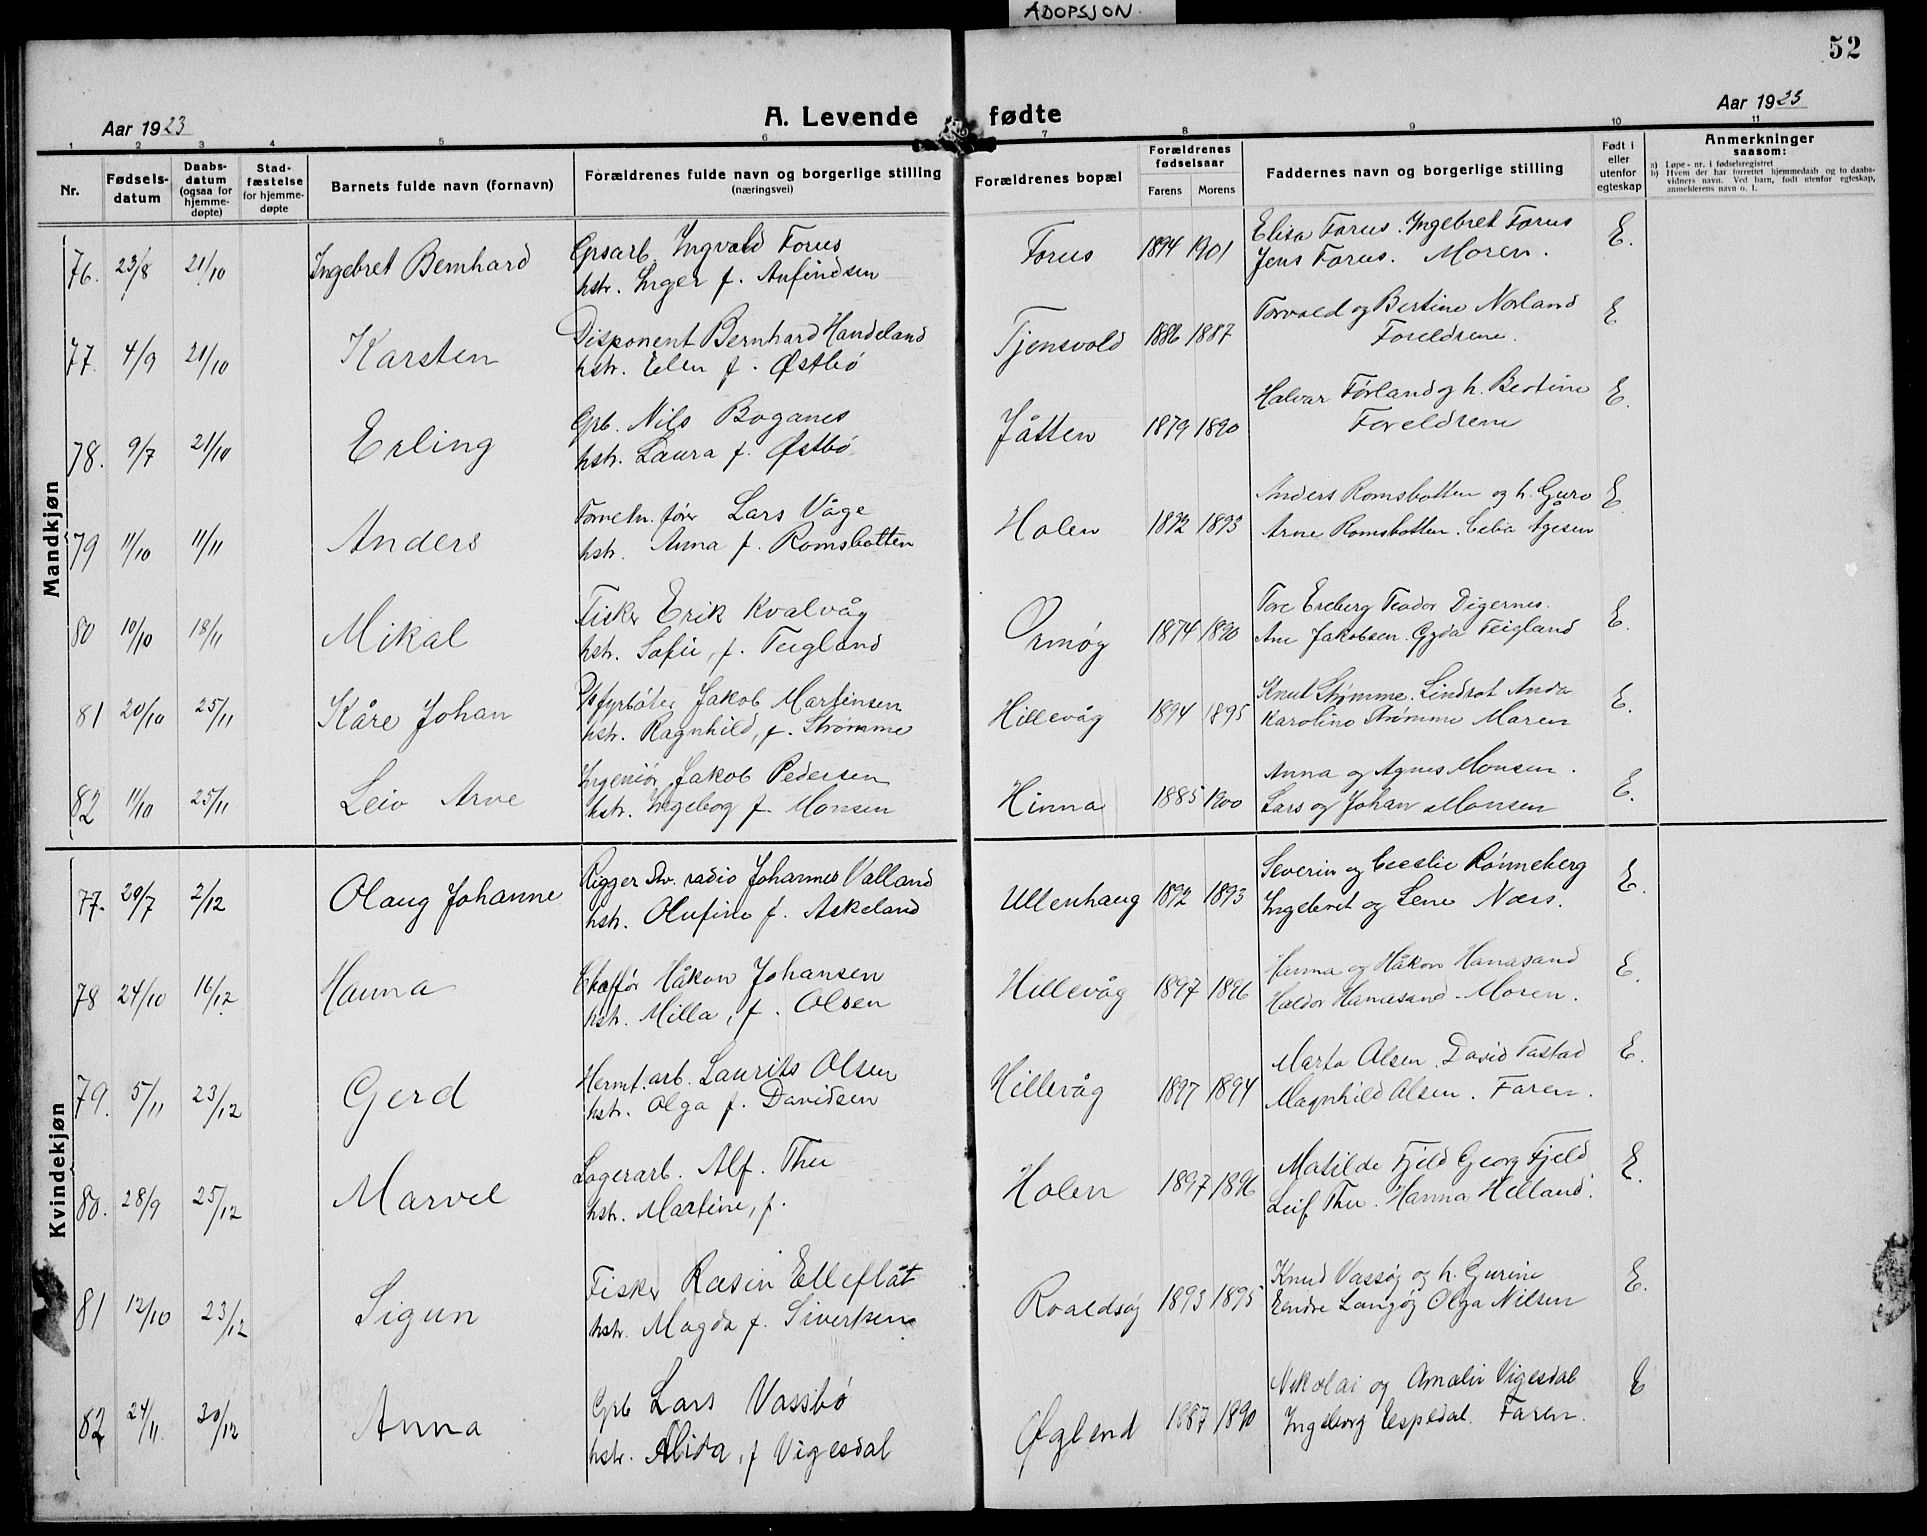 ADOPSJON.
52
Aar 1923
A. Levende fødte
Aar 1923
1 2 3 4 5 6 7 8 9 10 11
Nr.
Fødsels-
datum
Daabs-
datum
(ogsaa for
hjemme-
døpte)
Stad-
fæstelse
for hjemme-
døpte
Barnets fulde navn (fornavn)
Forældrenes fulde navn og borgerlige stilling
(næringsvei)
Forældrenes bopæl
Forældrenes
fødselsaar
Farens Morens
Faddernes navn og borgerlige stilling
Født i
eller
utenfor
egteskap
Anmerkninger
saasom:
a) Løpe-nr. i fødselsregistret
b) Hvem der har forrettet hjemmedaab og to daabs-
vidners navn. Ved barn, født utenfor egteskap,
anmelderens navn o. l.
Mandkjøn
76. 23/8 21/10 Ingebret Bernhard
Grsarb. Ingvald Forus
hstr. Inger f. Anfindsen
Forus 1894 1901
Elisa Forus. Ingebret Forus
Jens Forus. Moren.
E.
77. 4/9 21/10 Karsten
Disponent Bernhard Handeland
hstr. Elen f. Østbö
Tjensvold 1886 1887
Torvald og Bertine Norland
Foreldrene.
E
78. 9/7 21/10 Erling
Grb. Nils Boganes
hstr. Laura f. Østbö
Jåtten 1879 1890
Halvar Førland og h. Bertine
Foreldrene
E.
79 11/10 11/11 Anders
fører Lars Våge
hstr. Anna f. Romsbotten
Holen 1892 1893
Anders Romsbotten og h. Guro
Arne Romsbotten. Celia Ågesen
E.
80 10/10 18/11 Mikal
Fisker Erik Kvalvåg
hstr. Sofie, f. Teigland
Ormøy 1874 1890
Tore Teodor Digernes.
Ane Jakobsen. Gyda Teigland
E.
81 20/10 25/11 Kåre Johan
fyrbøter Jakob Martinsen
hstr. Ragnhild, f. Strømme
Hillevåg 1894 1895
Knut Strømme. Lindrot Anda
Karoline Strømme Moren
E.
82 11/10 25/11 Leiv Arve
Ingeniør Jakob Pedersen
hstr. Ingeborg f. Monsen
Hinna 1885 1900
Anna og Agnes Monsen.
Lars og Johan Monsen
E.
Kvindekjøn
77. 20/7 2/12 Olaug Johanne
Rigger Stv. radio Johannes Valland
hstr. Olufine f. Askeland
Ullenhaug 1892 1893
Severin og Cecelie Rønneberg
Ingebret og Lene Næss.
E.
78 24/10 16/12 Hanna
Chaffør Håkon Johansen
hstr. Milla, f. Olsen
Hillevåg 1897 1896
Hanna og Håkon Hanasand
Haldor Hanasand. Moren.
E.
79. 5/11 23/12 Gerd
Hermt.arb. Laurits Olsen
hstr. Olga f. Davidsen
Hillevåg 1897 1894
Marta Olsen. David Tastad
Magnhild Olsen. Faren.
E.
80. 28/9 25/12 Marvel
Lagerarb. Alf. Thu
hstr. Martine, f.
Holen 1897 1896
Matilde Fjeld Georg Fjeld
Leif Thu. Hanna Helland.
E.
81 12/10 23/12 Sigun
Fisker Rasin Elleflåt
hstr. Magda f. Sivertsen.
Roaldsøy 1893 1895
Knud Vassøy og h. Gurine
Endre Langøy Olga Nilsen
E.
82 24/11. 30/12 Anna
Grb Lars Vassbö
hstr. Alida, f Vigesdal
Øglend 1887 1890
Nikolai og Amalie Vigesdal
Ingeborg Espedal. Faren.
E